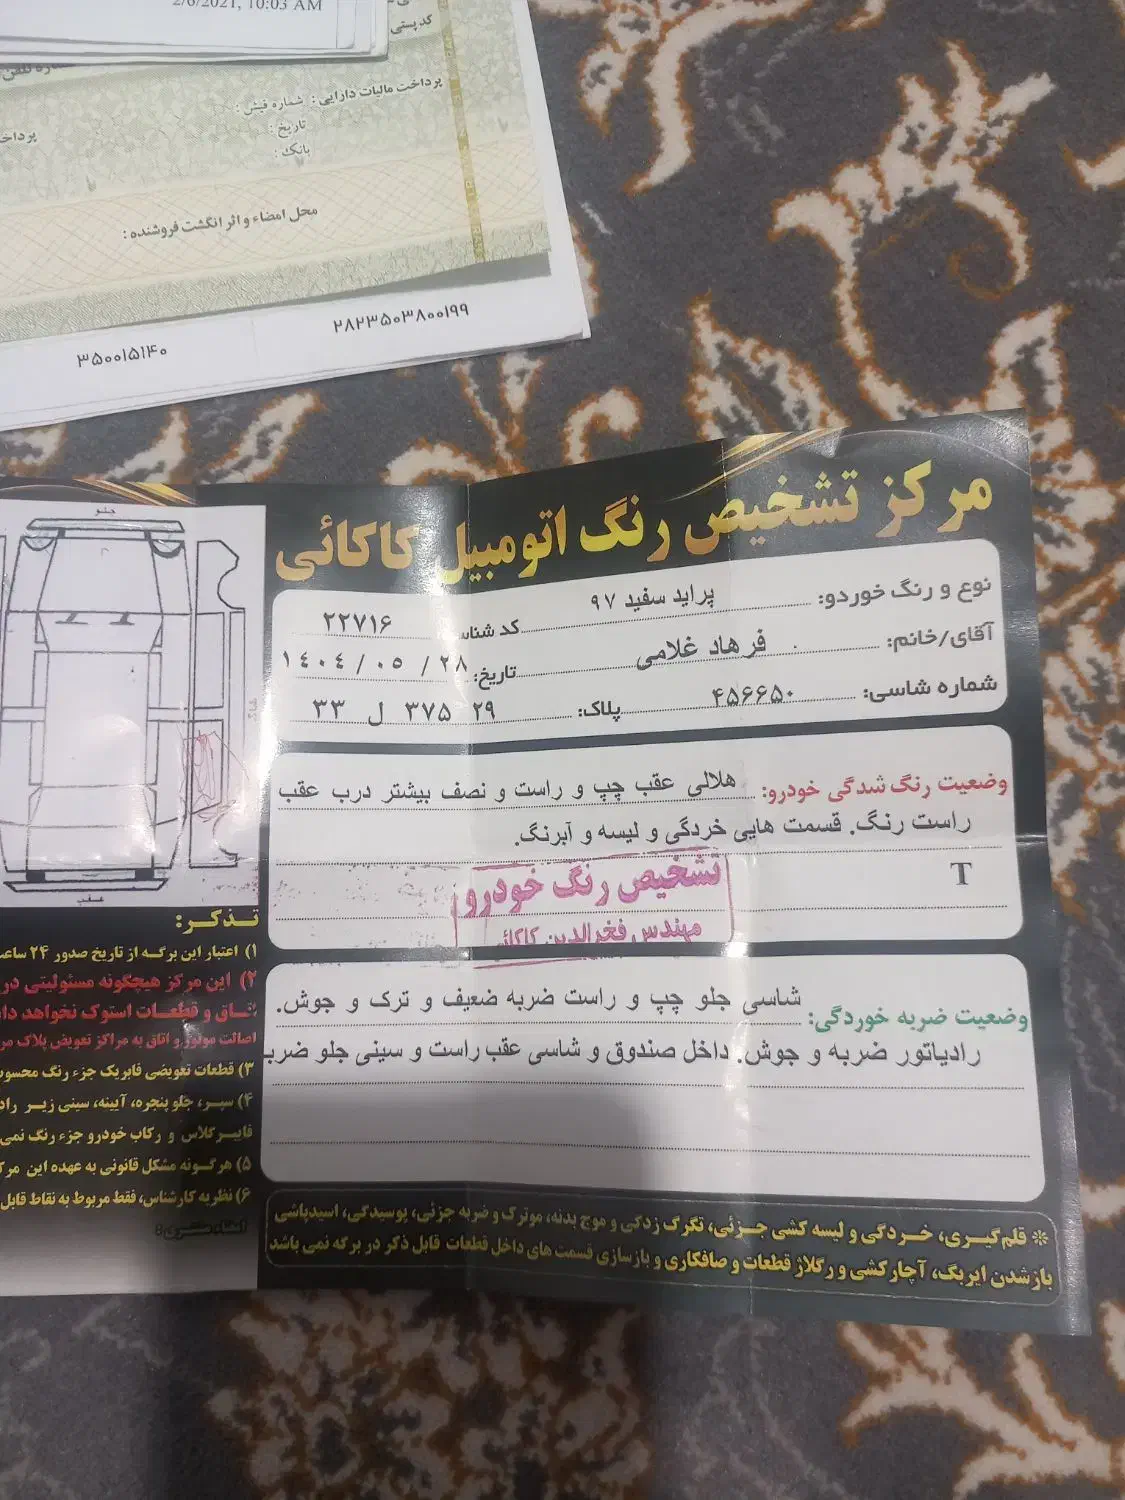 2/6/2021, 10:03 AM
کدپستی
پرداخت مالیات دارایی: شماره فیش:
تاریخ:
بانک:
محل امضاء و اثر انگشت فروشنده:
۲۸۲۳۵۰۳۸۰۰۱۹۹
۳۵۰۰۱۵۱۴۰
مرکز تشخیص رنگ اتومبیل کاکائی
نوع و رنگ خوردو: پراید سفید ۹۷
کد شناس ۲۲۷۱۶
آقای/خانم: فرهاد غلامی
تاریخ: ۱۴۰۴ / ۰۵ / ۲۸
شماره شاسی: ۴۵۶۶۵۰
پلاک: ۲۹ ۳۷۵ ل ۳۳
وضعیت رنگ شدگی خودرو: هلالی عقب چپ و راست و نصف بیشتر درب عقب
راست رنگ. قسمت هایی خردگی و لیسه و آبرنگ.
T
تشخیص رنگ خودرو
مهندس فخرالدین کاکائی
وضعیت ضربه خوردگی: شاسی جلو چپ و راست ضربه ضعیف و ترک و جوش.
رادیاتور ضربه و جوش. داخل صندوق و شاسی عقب راست و سینی جلو ضرب
* قلم گیری، خردگی و لیسه کشی جزئی، تگرگ زدگی و موج بدنه، موترک و ضربه جزئی، پوسیدگی، اسیدپاشی
بازشدن ایربگ، آچارکشی و رگلاژ قطعات و صافکاری و بازسازی قسمت های داخل قطعات قابل ذکر در برگه نمی باشد
جلو
عقب
تذکر:
۱) اعتبار این برگه از تاریخ صدور ۲۴ ساعت
۲) این مرکز هیچگونه مسئولیتی در
اتاق و قطعات استوک نخواهد دا
اصالت موتور و اتاق به مراکز تعویض پلاک مر
۳) قطعات تعویضی فابریک جزء رنگ محسوب
۴) سپر، جلو پنجره، آیینه، سینی زیر راد
فایبرگلاس و رکاب خودرو جزء رنگ نمی
۵) هرگونه مشکل قانونی به عهده این مرک
۶) نظریه کارشناس، فقط مربوط به نقاط قابل
امضاء مشتری: